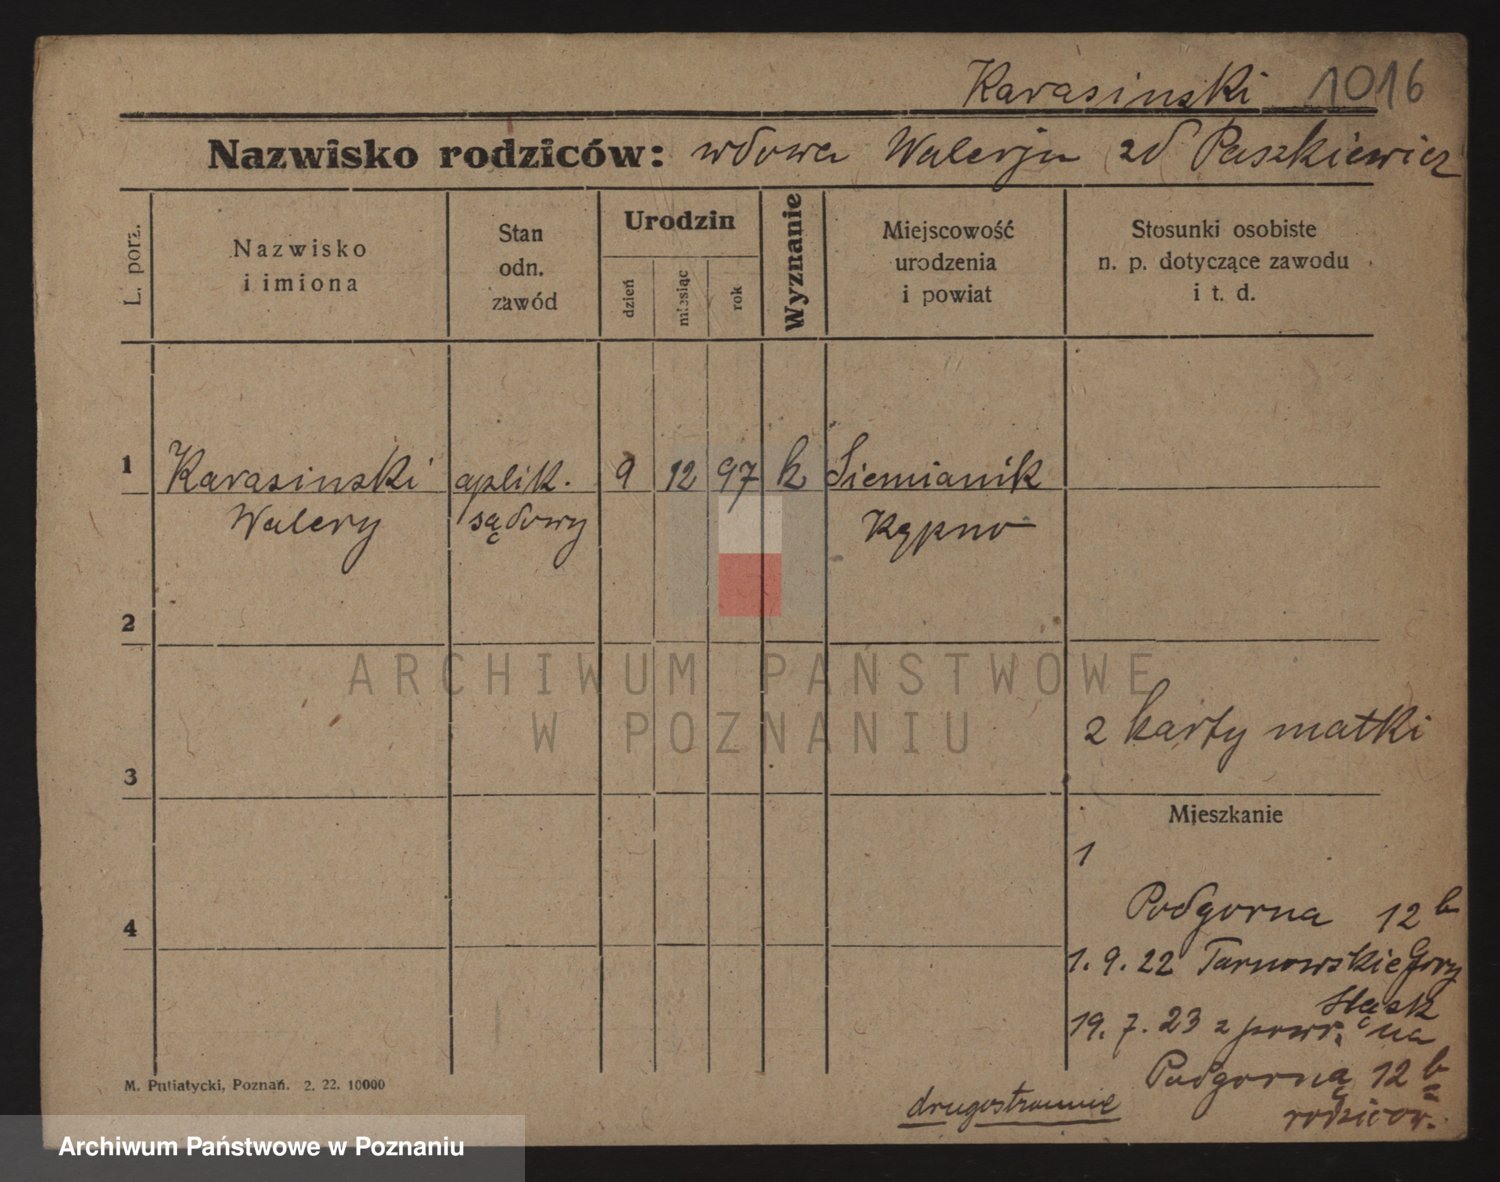 Karasinski 1016
Nazwisko rodziców: wdowa Walerja zd Paszkiewicz
L. porz.
Nazwisko
i imiona
Stan
odn.
zawód
Urodzin
dzień
miesiąc
rok
Wyznanie
Miejscowość
urodzenia
i powiat
Stosunki osobiste
n. p. dotyczące zawodu
i t. d.
1 Karasinski aplik. 9 12 97 k Siemianik
Walery sądowy Kępno
2
ARCHIWUM PAŃSTWOWE
W POZNANIU
z karty matki
3
Mieszkanie
1
Podgorna 12 b
4
1. 9. 22 Tarnowskie Gory
Śląsk
19. 7. 23 z powr. na
Podgorną 12 b
rodzicow.
M. Putiatycki, Poznań. 2. 22. 10000
drugostronnie
Archiwum Państwowe w Poznaniu